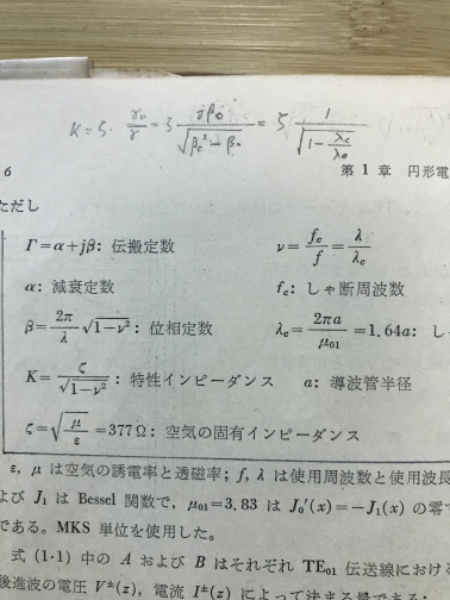 K = ζ · γ₀/γ = ζ jβ₀/√(β_c² − β₀) = ζ 1/√(1 − λ_c/λ₀)
6 第 1 章 円形電
ただし
Γ=α+jβ: 伝搬定数 ν=f_c/f=λ/λ_c
α: 減衰定数 f_c: しゃ断周波数
β=2π/λ √(1-ν²): 位相定数 λ_c=2πa/μ₀₁=1.64a: し
K=ζ/√(1-ν²): 特性インピーダンス a: 導波管半径
ζ=√(μ/ε)=377Ω: 空気の固有インピーダンス
ε, μ は空気の誘電率と透磁率; f, λ は使用周波数と使用波長
よび J₁ は Bessel 関数で, μ₀₁=3.83 は J₀′(x)=−J₁(x) の零
である。MKS 単位を使用した。
式 (1·1) 中の A および B はそれぞれ TE₀₁ 伝送線における
後進波の電圧 V±(z), 電流 I±(z) によって決まる量である: